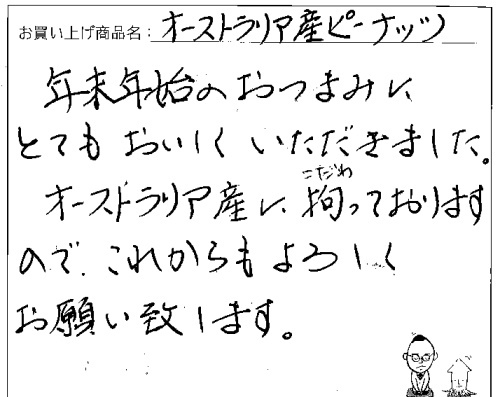 お買い上げ商品名：オーストラリア産ピーナッツ
年末年始のおつまみに
とてもおいしくいただきました。
こだわ
オーストラリア産に拘っております
ので、これからもよろしく
お願い致します。